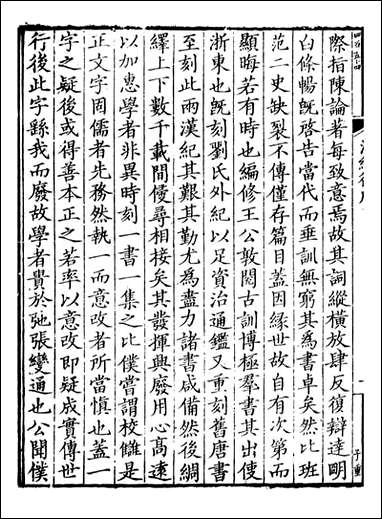 際指陳論著每致意焉故其詞縱橫放肆反復辯達明
白條暢既啓告當代而垂訓無窮其為書卓矣然比班
范二史缺裂不傳僅存篇目蓋因緣世故自有次第而
顯晦若有時也編修王公敦閎古訓博極羣書其出使
浙東也既刻劉氏外紀以足資治通鑑又重刻舊唐書
至刻此兩漢紀其艱其勤尤為盡力諸書咸備然後綢
繹上下數千載間僾尋相接矣其發揮興廢用心高遠
以加惠學者非異時刻一書一集之比僕嘗謂校讎是
正文字固儒者先務然執一而意改者所當慎也蓋一
字之疑後或得善本正之若率以意改即疑成實傳世
行後此字繇我而廢故學者貴於弛張變通也公聞僕